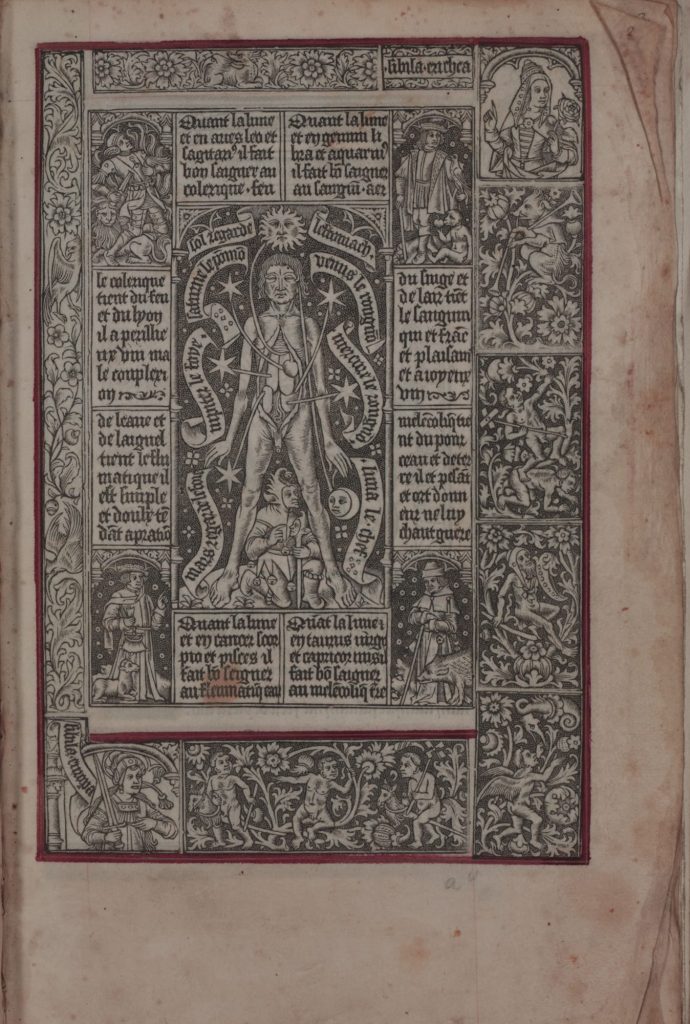 sibila erithea
Quant la lune
et en aries leo et
sagitari⁹ il fait
bon saigner au
colerique · feu
Quant la lune
et en gemini li
bra et aquari⁹
il fait bõ saigner
au sanguĩ · aer
sol regarde
lestomach ·
saturne le pomõ
venus le rongnõ
iupiter le foye ·
mercure le rongnõ
mars regarde le foy
luna le chief
le colerique
tient du feu
et du lyon
il a perilhe
ux vin ma
le complexi
on
du singe et
de lair tiẽt
le sanguin
qui et frãc
et plaisant
et a ioyeux
vin
de leaue et
de laignel
tient le fleu
matique il
est simple
et doulx tẽ
dãt a pratiq̃
melẽcoliq̃ tie
nt du pour
ceau et de ter
re il et pesãt
et ort donn
eur ne luy
chaut guere
Quant la lune
et en cancer scor
pio et pisces il
fait bõ seigner
au fleumatiq̃ eau
Quãt la lune ;
en taurus virgo
et capricornus il
fait bõ saigner
au melẽcoliq̃ tr̃e
sibila europa
a